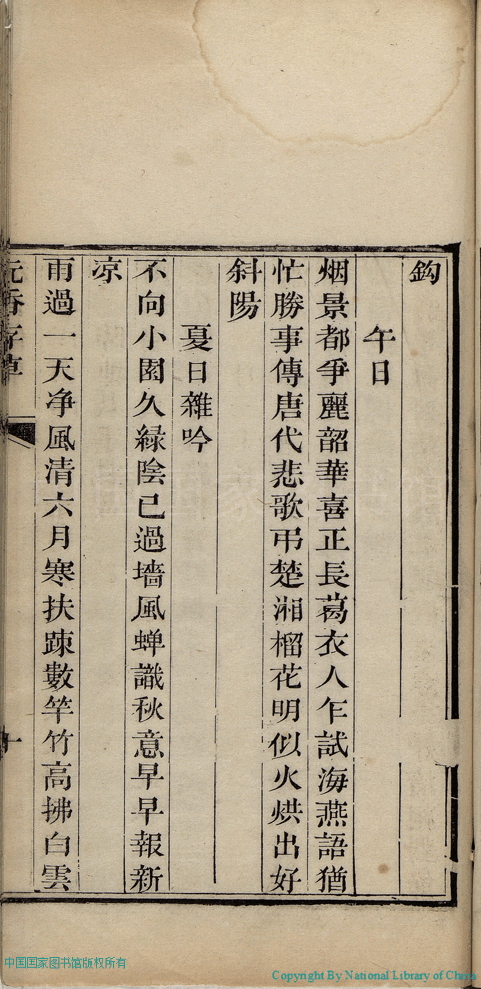 鈎
午日
烟景都爭麗韶華喜正長葛衣人乍試海燕語猶
忙勝事傳唐代悲歌弔楚湘榴花明似火烘出好
斜陽
夏日雜吟
不向小園久緑陰已過墻風蝉識秋意早早報新
凉
雨過一天净風清六月寒扶踈數竿竹高拂白雲
香草
十
中国国家图书馆版权所有
Copyright By National Library of China